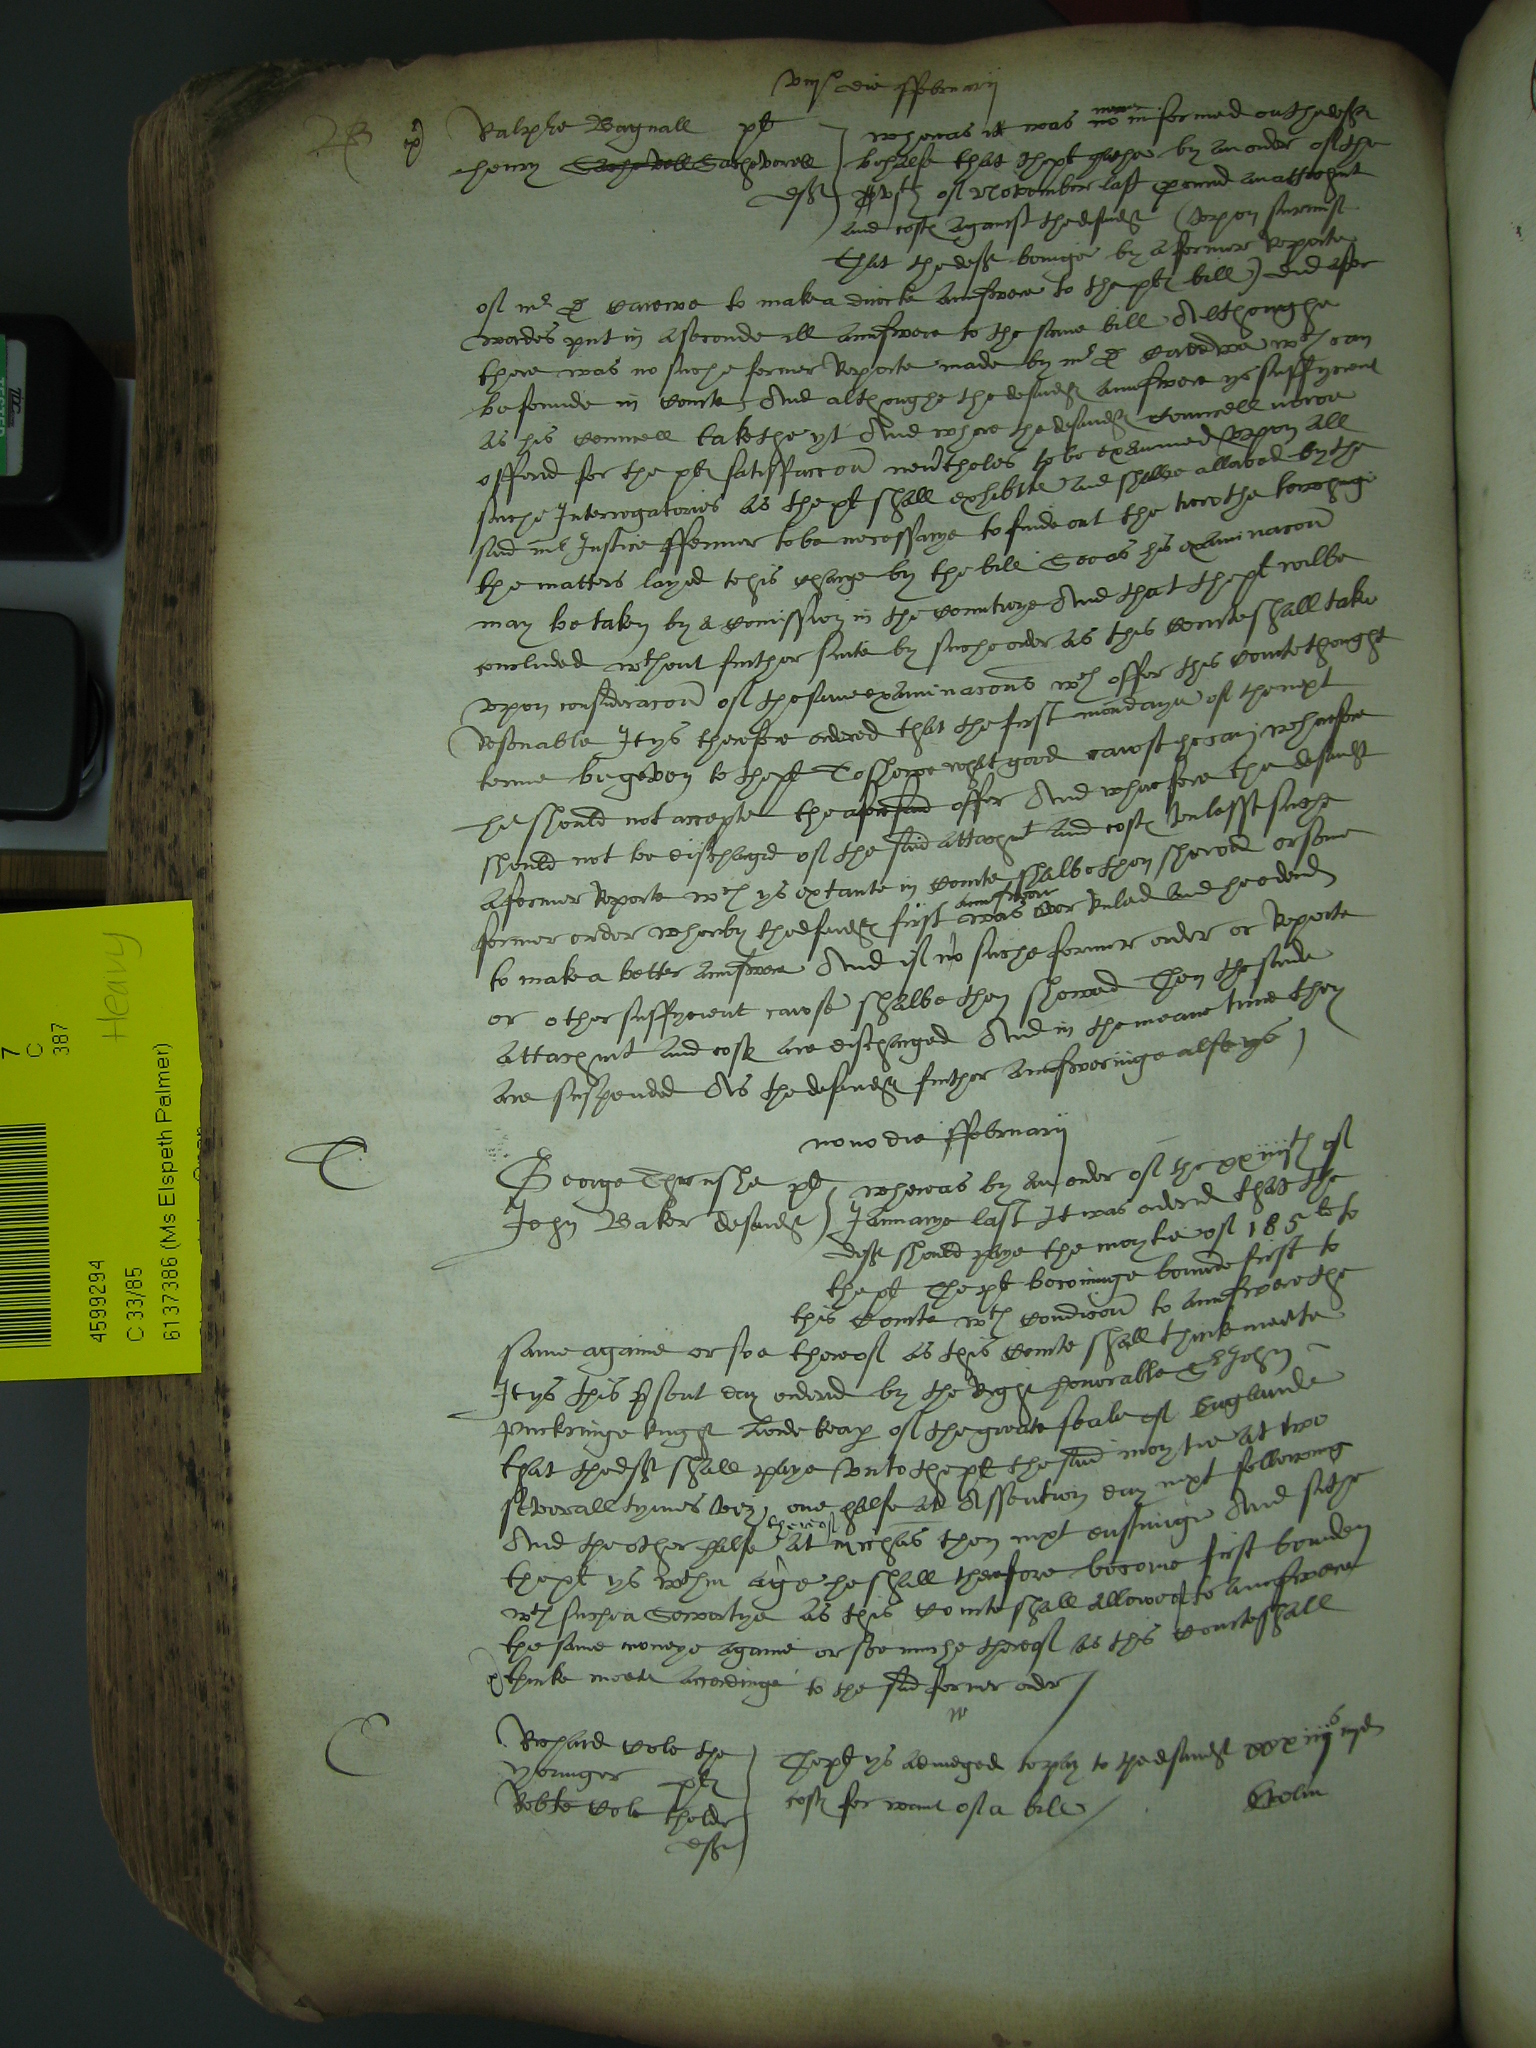 viij° die ffebruarij
Ralphe Bagnall plt
henry Sachevell Sacheverell
deft
whereas it was no nowe informed on the defts
behalfe that the plt hathe by an order of the
of November last procured an attachmt
and costs against the defendt (vpon surmise
That the deft beinge by a former Reporte
of mr D Carewe to make a directe Aunswere to the plts bill) did after
wardes put in a seconde ill Aunswere to the same bill Althoughe
there was no suche former Reporte made by mr D Carewe wch can
be founde in Courte, And althoughe the defendts Aunswere ys suffycient
as his Councell takethe yt And where the defendts Councell nowe
offered for the plts satisfaccon neutheles to be examined vpon all
suche Interrogatories as the plt shall exhibite and shalbe allowed by the
said mr Justice ffenner to be necessarye to finde out the truthe towchinge
the matters layed to his Charge by the bill Soe as his examinacon
may be taken by a Comission in the Countrye And that the plt wilbe
concluded wthout further suite by suche order as this Courte shall take
vpon consideracon of the same examinacons wch offer this Courte thought
Resonable It ys therefore ordered that the first mondaye of the next
terme be geven to the plt To shewe what good cawse he can wherefore
he should not accepte the aforesaid offer And wherefore the defendt
should not be dischargd of the said attachmt and costs vnlesse suche
a former Reporte wch ys extante in Courte shalbe then shewed or some
former order wherby the defendts first Aunswere was over Ruled and he ordered
to make a better Aunswere And if no suche former order or Reporte
or other suffycient cawse shalbe then shewed Then the saide
attachmt and costs are discharged And in the meane time they
are suspended As the defendts further Aunsweringe also ys /
nono die ffebruarij
George Thrushe plt
John Baker defendt
whereas by an order of the xxiiijth of
Januarye last It was ordered that the
deft should paye the moytie of 185 li to
the plt The plt becominge bounde first to
this Courte wth Condicon to aunswere the
same againe or soe thereof as this Courte shall thinke meete
It ys this present day ordered by the Right honorable Sr John
Puckringe knight Lorde keap of the greate seale of Englande
that the deft shall paye vnto the plt the said moytie at two
severall tymes viz, one halfe at Assention day next following
And the other halfe thereof at michas then next ensuinge And sithe
the plt ys wthin age he shall therefore become first bounden
wth suche a Sewertye as this Courte shall allowe of to aunswere
the same moneye againe or soe muche thereof as this Courte shall
thinke meete accordinge to the said former order /
Richard Cole the
Younger plt
Robte Cole thelder
deft
The plt ys adiudged to pay to the defendt xxxiijs iiijd
costs for want of a bill /
7
C
387
Heavy
4599294
C 33/85
6137386 (Ms Elspeth Palmer)